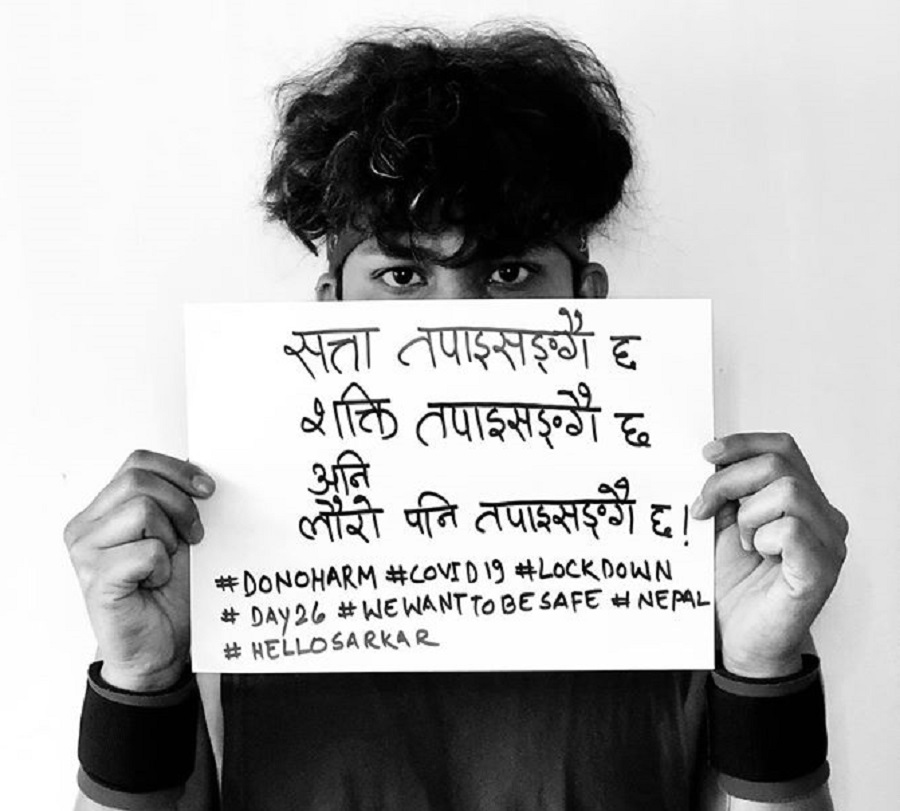 सत्ता तपाइसङ्गै छ
शक्ति तपाइसङ्गै छ
अनि
लौरो पनि तपाइसङ्गै छ!
#DONOHARM #COVID19 #LOCKDOWN
# DAY26 #WEWANTTOBESAFE #NEPAL
# HELLOSARKAR